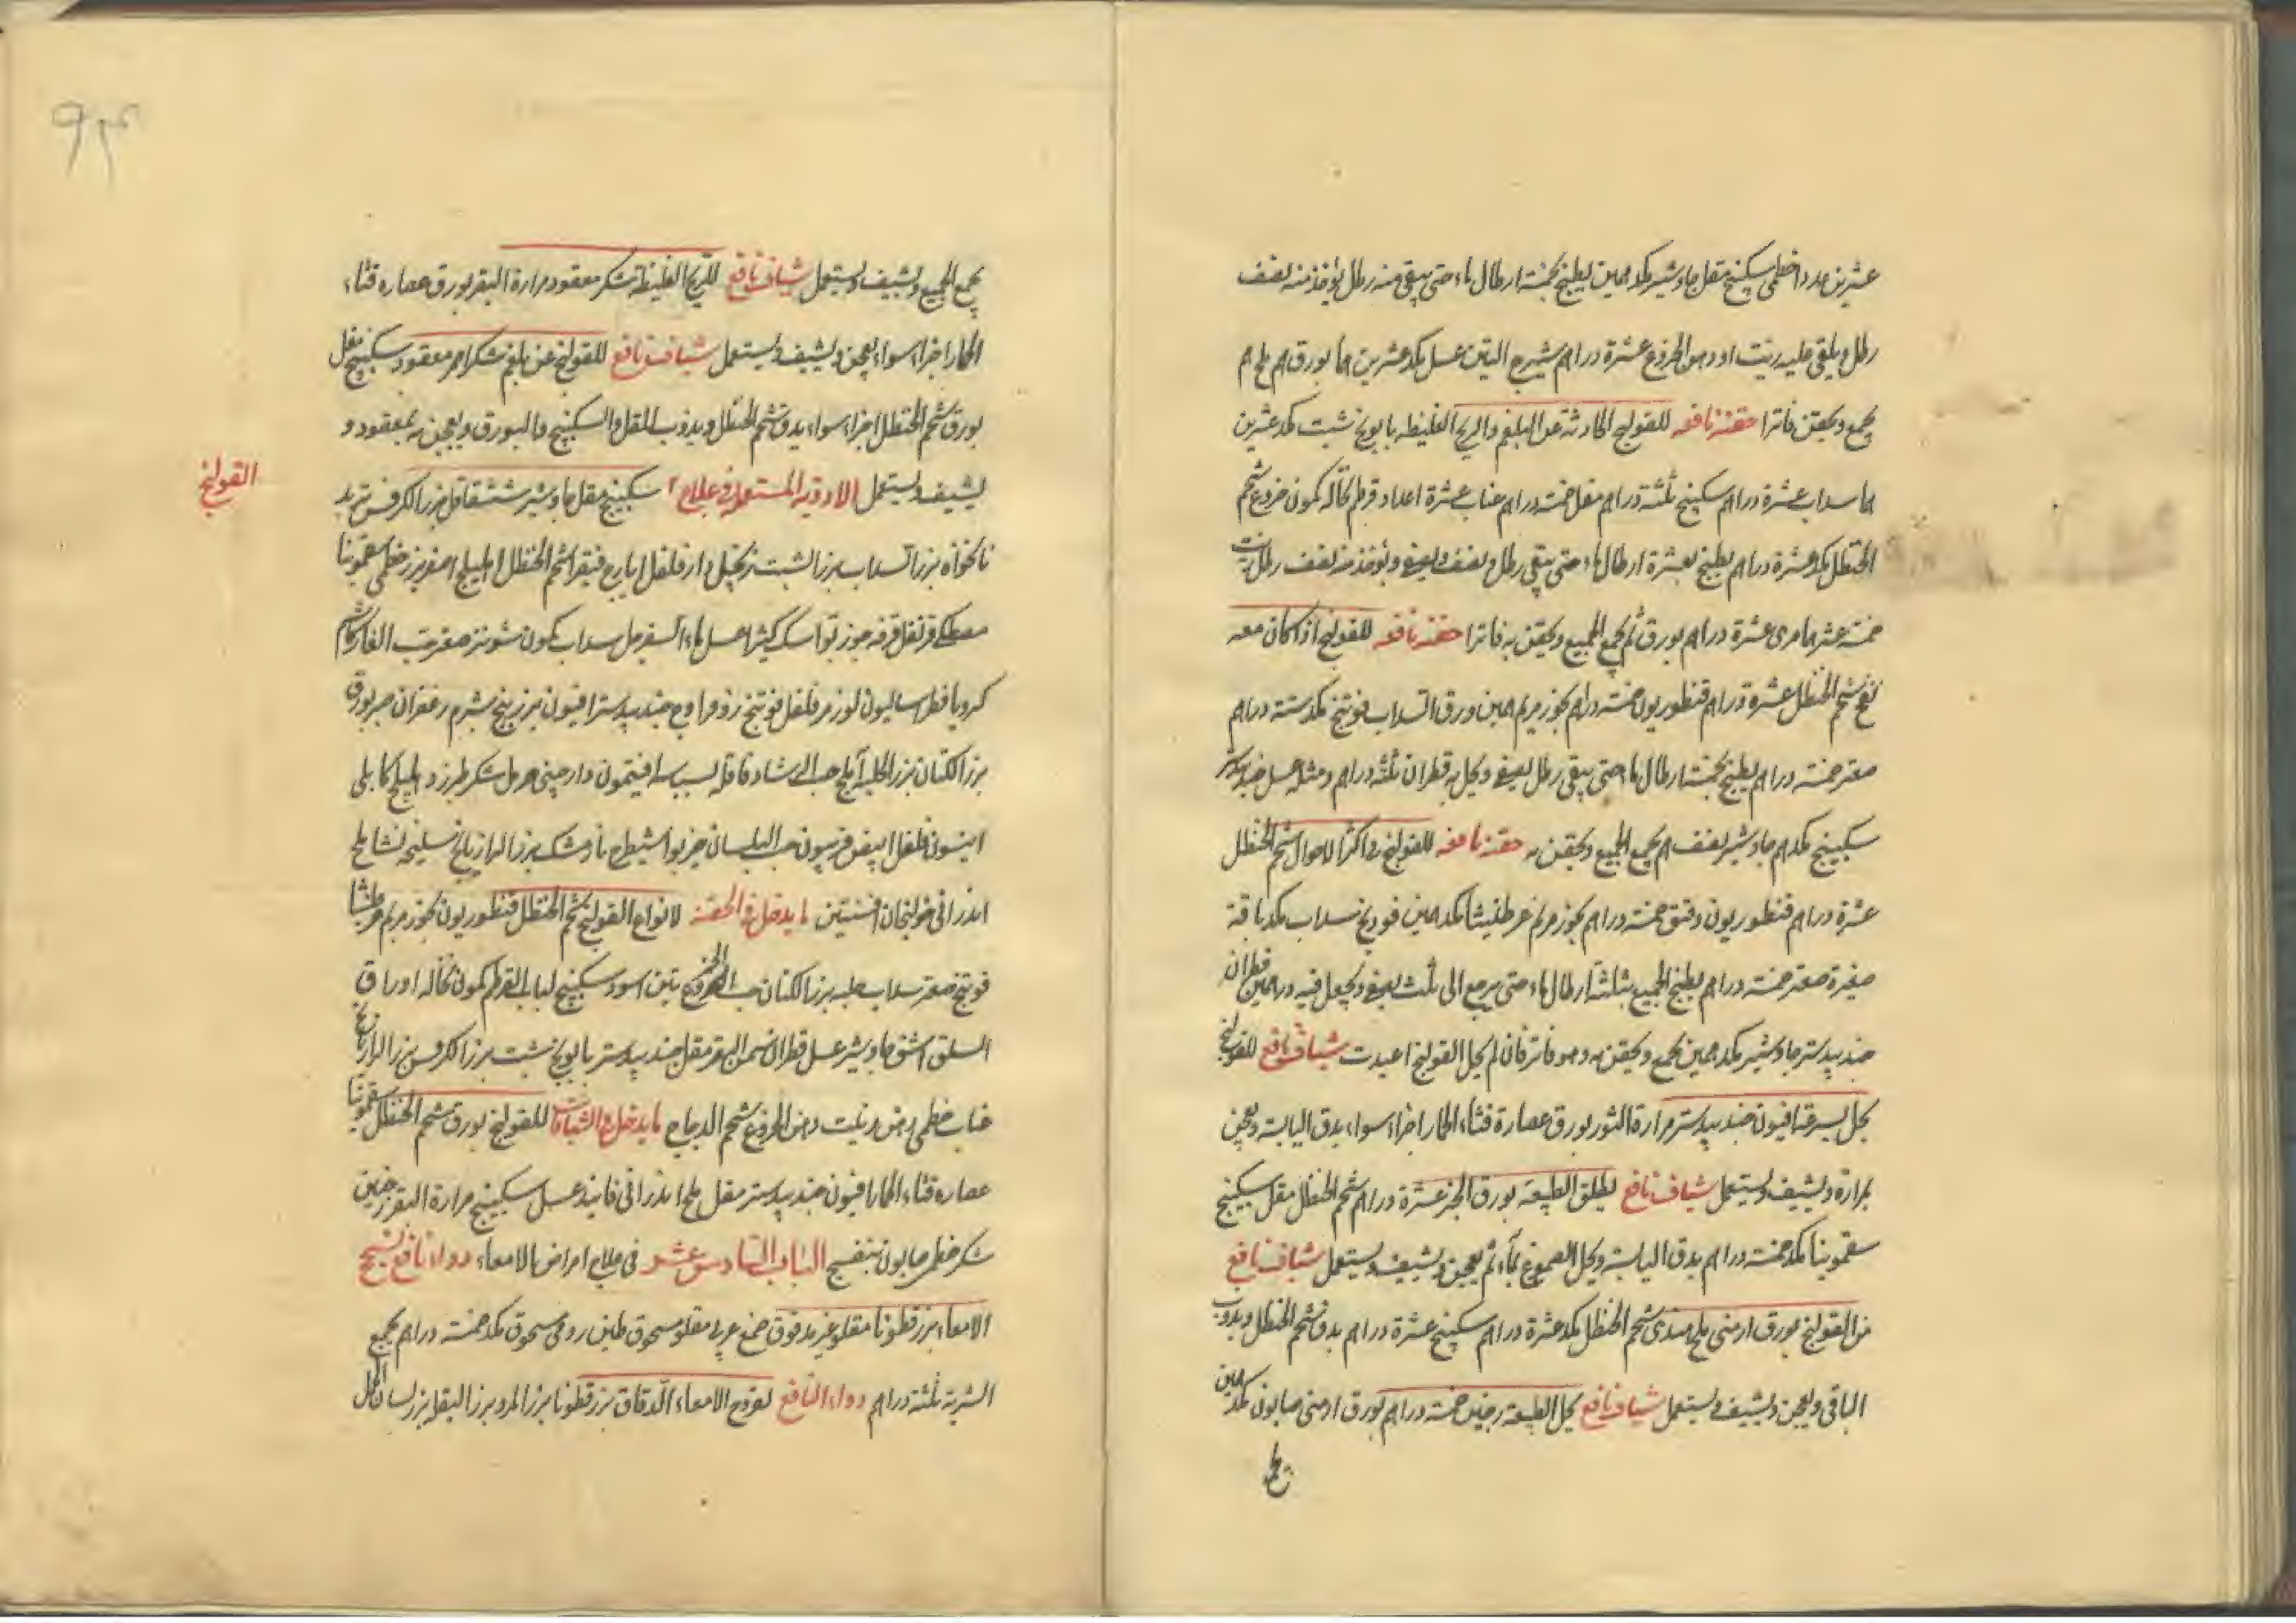 عشرين عددا خطمى سكبينج مقل جاوشير مكد درهمين يطبخ بخمسة ارطال ماء حتى يبقى منه رطل يؤخذ منه نصف
رطل ويلقى عليه زيت او دهن الخروع عشرة دراهم شيرج التين عسل مكد عشرين درهما بورق درهم ملح درهم
يجمع ويحقن فاترا حقنه نافعه للقولنج الحادثة عن البلغم والريح الغليظه بابونج شبت مكد عشرين
درهما سداب عشرة دراهم سكبينج ثلثة دراهم مقل خمسة دراهم عناب عشرة اعداد قرطم نخاله كمون خروع شحم
الحنظل مكد عشرة دراهم يطبخ بعشرة ارطال ماء حتى يبقى رطل ونصف ويصفى ويؤخذ منه نصف رطل زيت
خمسة عشر درهما مرى عشرة دراهم بورق ثم يجمع الجميع ويحقن به فاترا حقنه نافعه للقولنج اذا كان معه
نفخ شحم الحنظل عشرة دراهم قنطوريون خمسة دراهم بخور مريم درهمين ورق السداب فوتنج مكد ستة دراهم
صعتر خمسة دراهم يطبخ بخمسة ارطال ماء حتى يبقى رطل يصفى ويحل به قطران ثلثة دراهم ومثله عسل جندبيدستر
سكبينج مكد درهم جاوشير نصف درهم يجمع الجميع ويحقن به حقنه نافعه للقولنج فى اكثر الاحوال شحم الحنظل
عشرة دراهم قنطوريون دقيق خمسة دراهم بخور مريم عرطنيثا مكد درهمين فودنج سداب مكد باقة
صغيرة صعتر خمسة دراهم يطبخ الجميع بثلثة ارطال ماء حتى يرجع الى ثلث يصفى ويجعل فيه درهمين قطران
جندبيدستر جاوشير مكد درهمين يجمع ويحقن به وهو فاتر فان لم يحل القولنج اعيدت شياف نافع للقولنج
يحل بسرعة افيون جندبيدستر مرارة الثور بورق عصارة قثاء الحمار اجزاء سواء يدق اليابسة ويعجن
بمرارة ويشيف ويستعمل شياف نافع يطلق الطبيعة بورق الخبز عشرة دراهم شحم الحنظل مقل سكبينج
سقمونيا مكد خمسة دراهم يدق اليابسة ويحل الصموغ بماء ثم يعجن ويشيف ويستعمل شياف نافع
من القولنج بورق ارمنى ملح هندى شحم الحنظل مكد عشرة دراهم سكبينج عشرة دراهم يدق شحم الحنظل ويذوب
الباقى ويعجن ويشيف ويستعمل شياف نافع يحل الطبيعة زنجبين خمسة دراهم بورق ارمنى صابون مكد درهمين
٩٣
يجمع الجميع ويشيف ويستعمل شياف نافع للريح الغليظة سكر معقود مرارة البقر بورق عصاره قثاء
الحمار اجزاء سواء يعجن ويشيف ويستعمل شياف نافع للقولنج عن بلغم سكر احمر معقود سكبينج مقل
بورق شحم الحنظل اجزاء سواء يدق شحم الحنظل ويذوب المقل والسكبينج والبورق ويعجن به بمعقود و
يشيف ويستعمل الادوية المستعمله فى علاج سكبينج مقل جاوشير شقاقل بزر الكرفس تربد
القولنج
نانخواه بزر السداب بزر الشبت زنجبيل دارفلفل ايارج فيقرا شحم الحنظل اهليلج اصفر بزر خطمى سقمونيا
مصطكى قرنفل قرفه جوزبوا سك كثيرا عسل ماء السفرجل سداب كمون شونيز صعتر حب الغار كاشم
كرويا فطراساليون لوز مر فلفل فوتنج زوفرا وج جندبيدستر افيون بزر بنج شبرم زعفران صبر بورق
بزر الكتان بزر الحلبه املج حب الرشاد قاقله بسباسه افيتمون دارجينى حرمل سكر طبرزد اهليلج كابلى
انيسون فلفل ابيض فربيون حب البلسان خيربوا شيطرج نارمشك بزر الرازيانج سليخه نشا ملح
اندرانى خولنجان افسنتين ما يدخل فى الحقنة لانواع القولنج شحم الحنظل قنطوريون بخور مريم عرطنيثا
فوتنج صعتر سداب حلبه بزر الكتان حب الخروع تين اسود سكبينج لباب القرطم كمون نخاله اوراق
السلق اشق جاوشير عسل قطران سمن البقر مقل جندبيدستر بابونج شبت بزر الكرفس بزر الرازيانج
عناب خطمى زيت دهن الخروع شحم الدجاج ما يدخل فى الشيافات للقولنج بورق شحم الحنظل سقمونيا
عصاره قثاء الحمار افيون جندبيدستر مقل ملح اندرانى فانيد عسل سكبينج مرارة البقر زنجبين
سكر خطمى صابون بنفسج الباب السادس عشر فى علاج امراض الامعاء دواء نافع لسحج
الامعاء بزرقطونا مقلو غير مدقوق صمغ عربى مقلو مسحوق طين رومى مسحوق مكد خمسة دراهم يجمع
الشربة ثلثة دراهم دواء النافع لقروح الامعاء الدقاق بزرقطونا بزر المرو بزر البقله بزر لسان الحمل